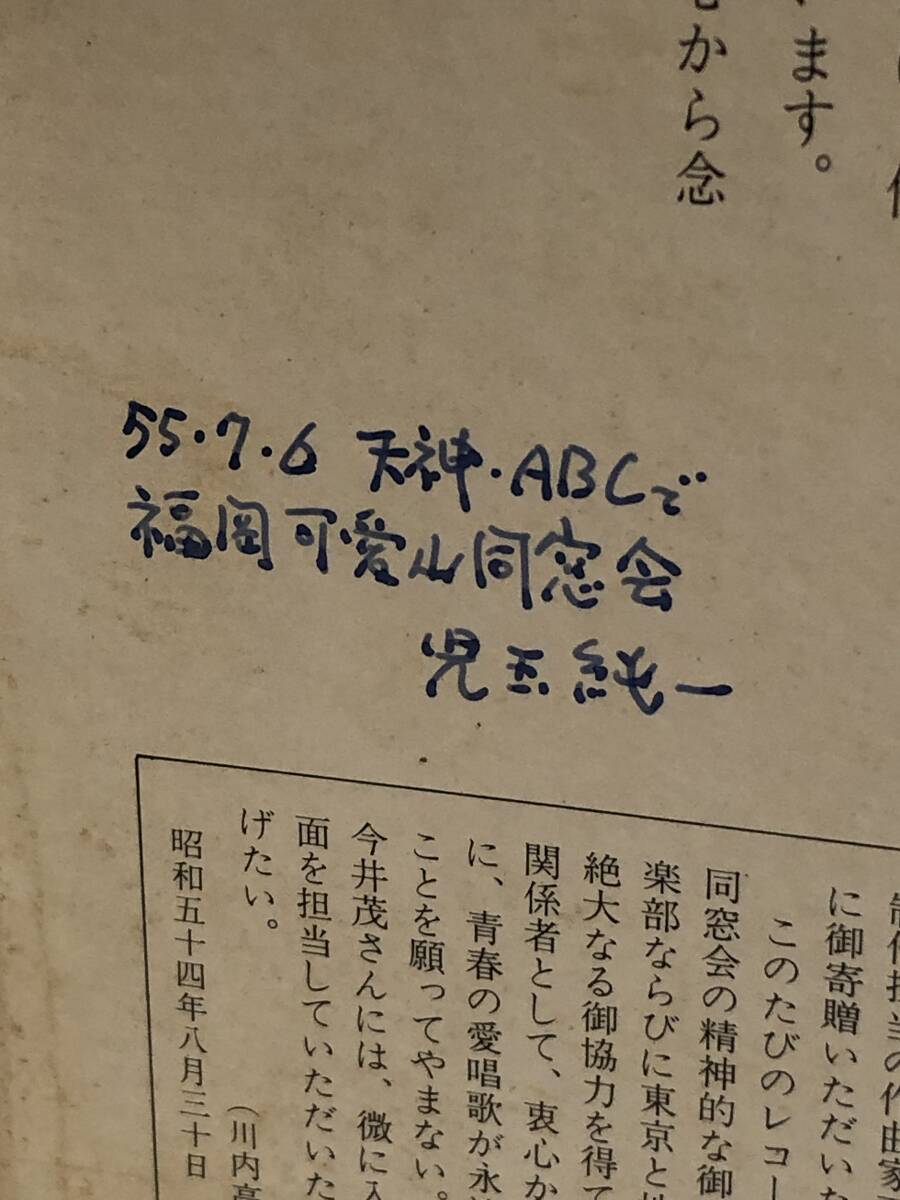 ます。
から念
55.7.6 天神・ABCで
福岡可愛山同窓会
児玉純一
に御寄贈いただいた
このたびのレコー
同窓会の精神的な御
楽部ならびに東京と
絶大なる御協力を得て
関係者として、衷心か
に、青春の愛唱歌が永
ことを願ってやまない。
今井茂さんには、微に入
面を担当していただいた
げたい。
昭和五十四年八月三十日
(川内高